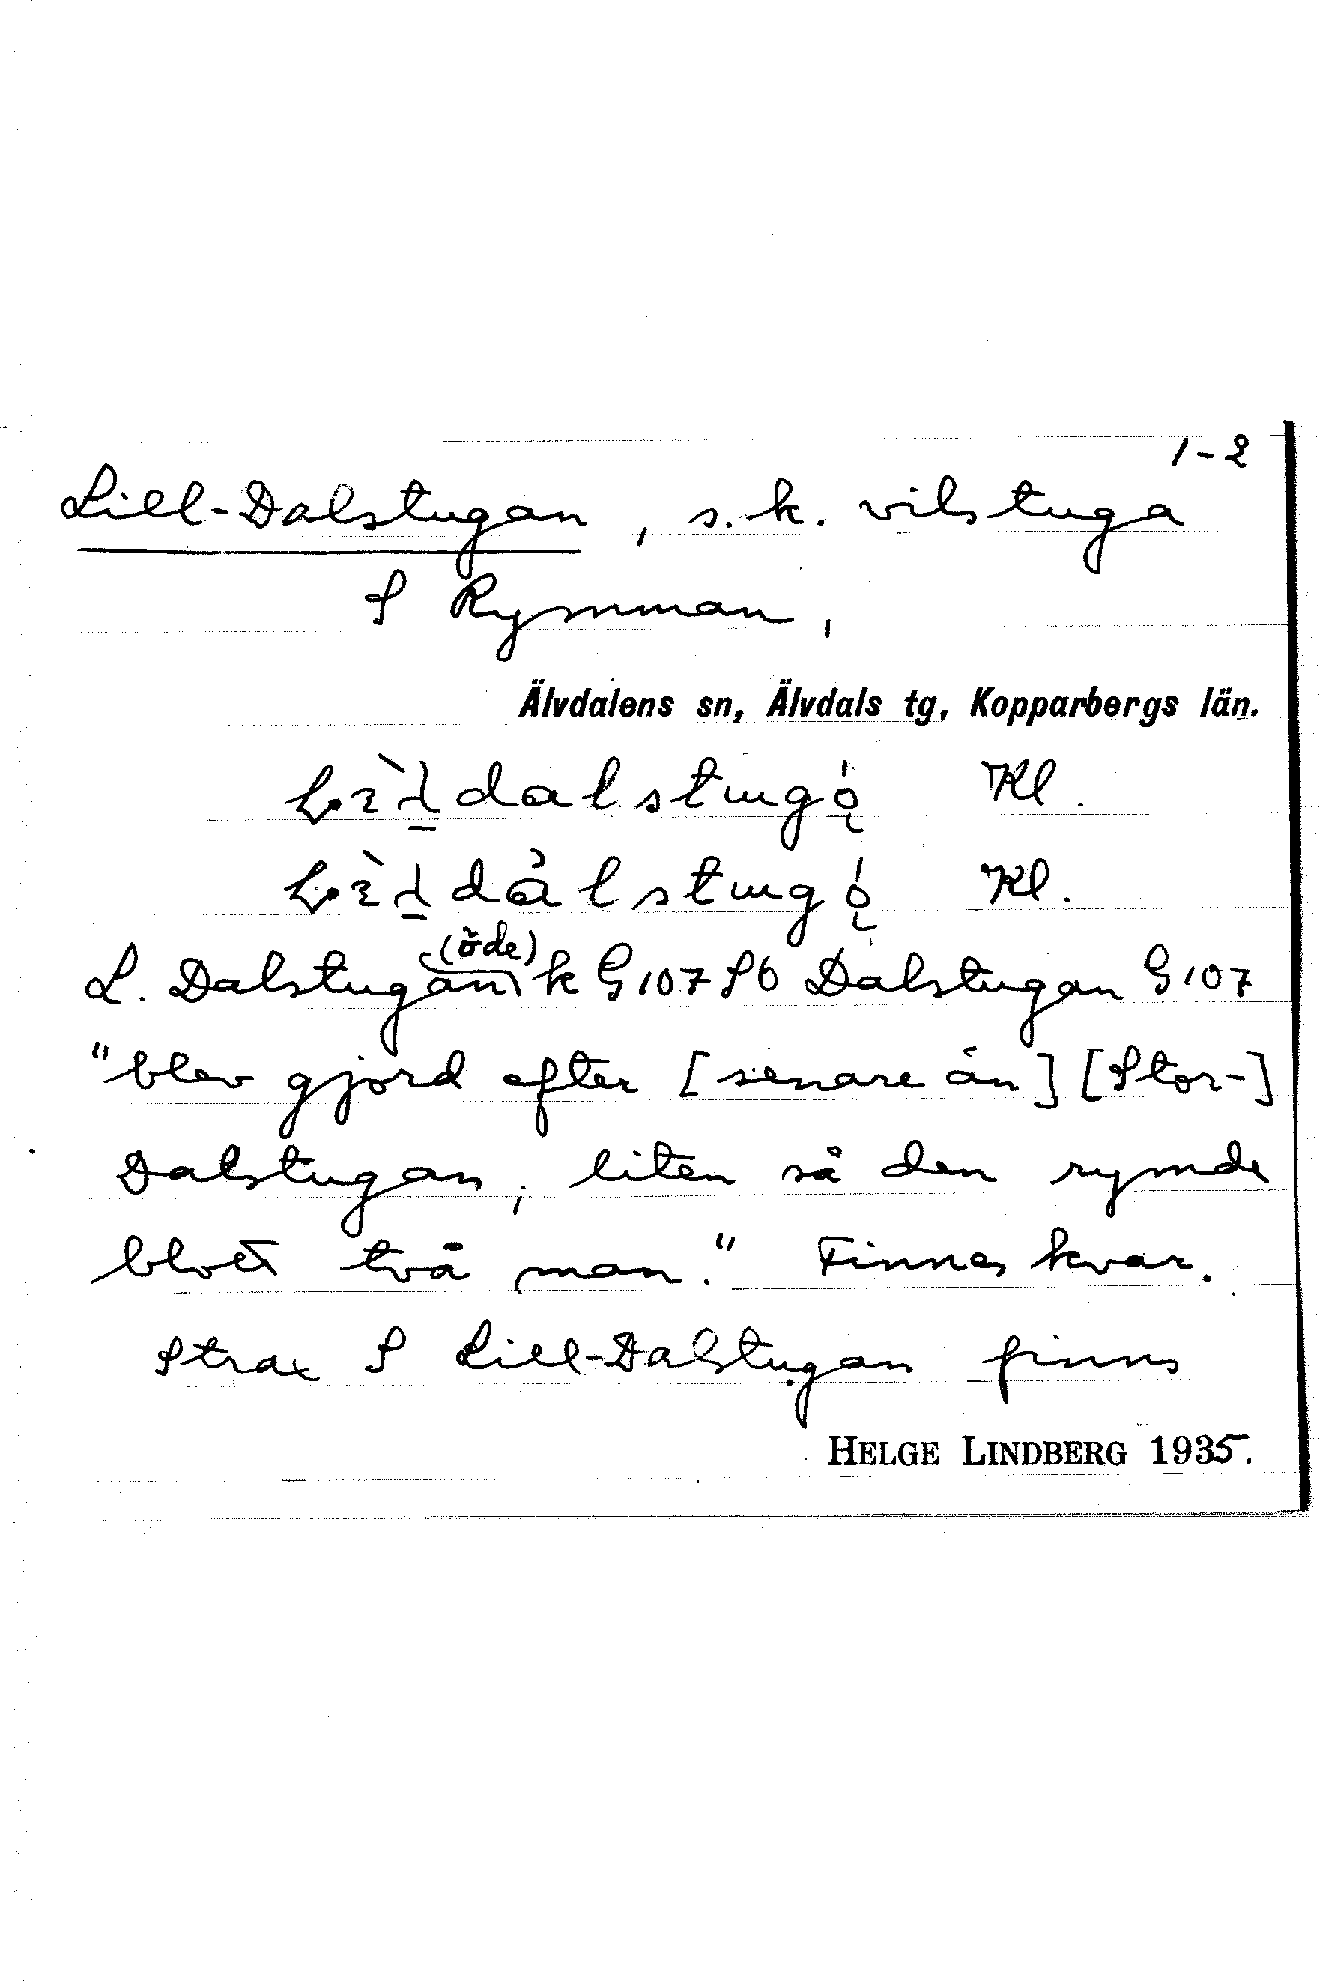 1-2
Lill-Dalstugan, s.k. vilstuga
S Rymman,
Älvdalens sn, Älvdals tg, Kopparbergs län.
Kl.
Kl.
(öde)
L. Dalstugan k G107 SO Dalstugan G107
"blev gjord efter [senare än] [Stor-]
Dalstugan, liten så den rymde
blott två man." Finnes kvar.
Strax S Lill-Dalstugan finns
HELGE LINDBERG 1935.